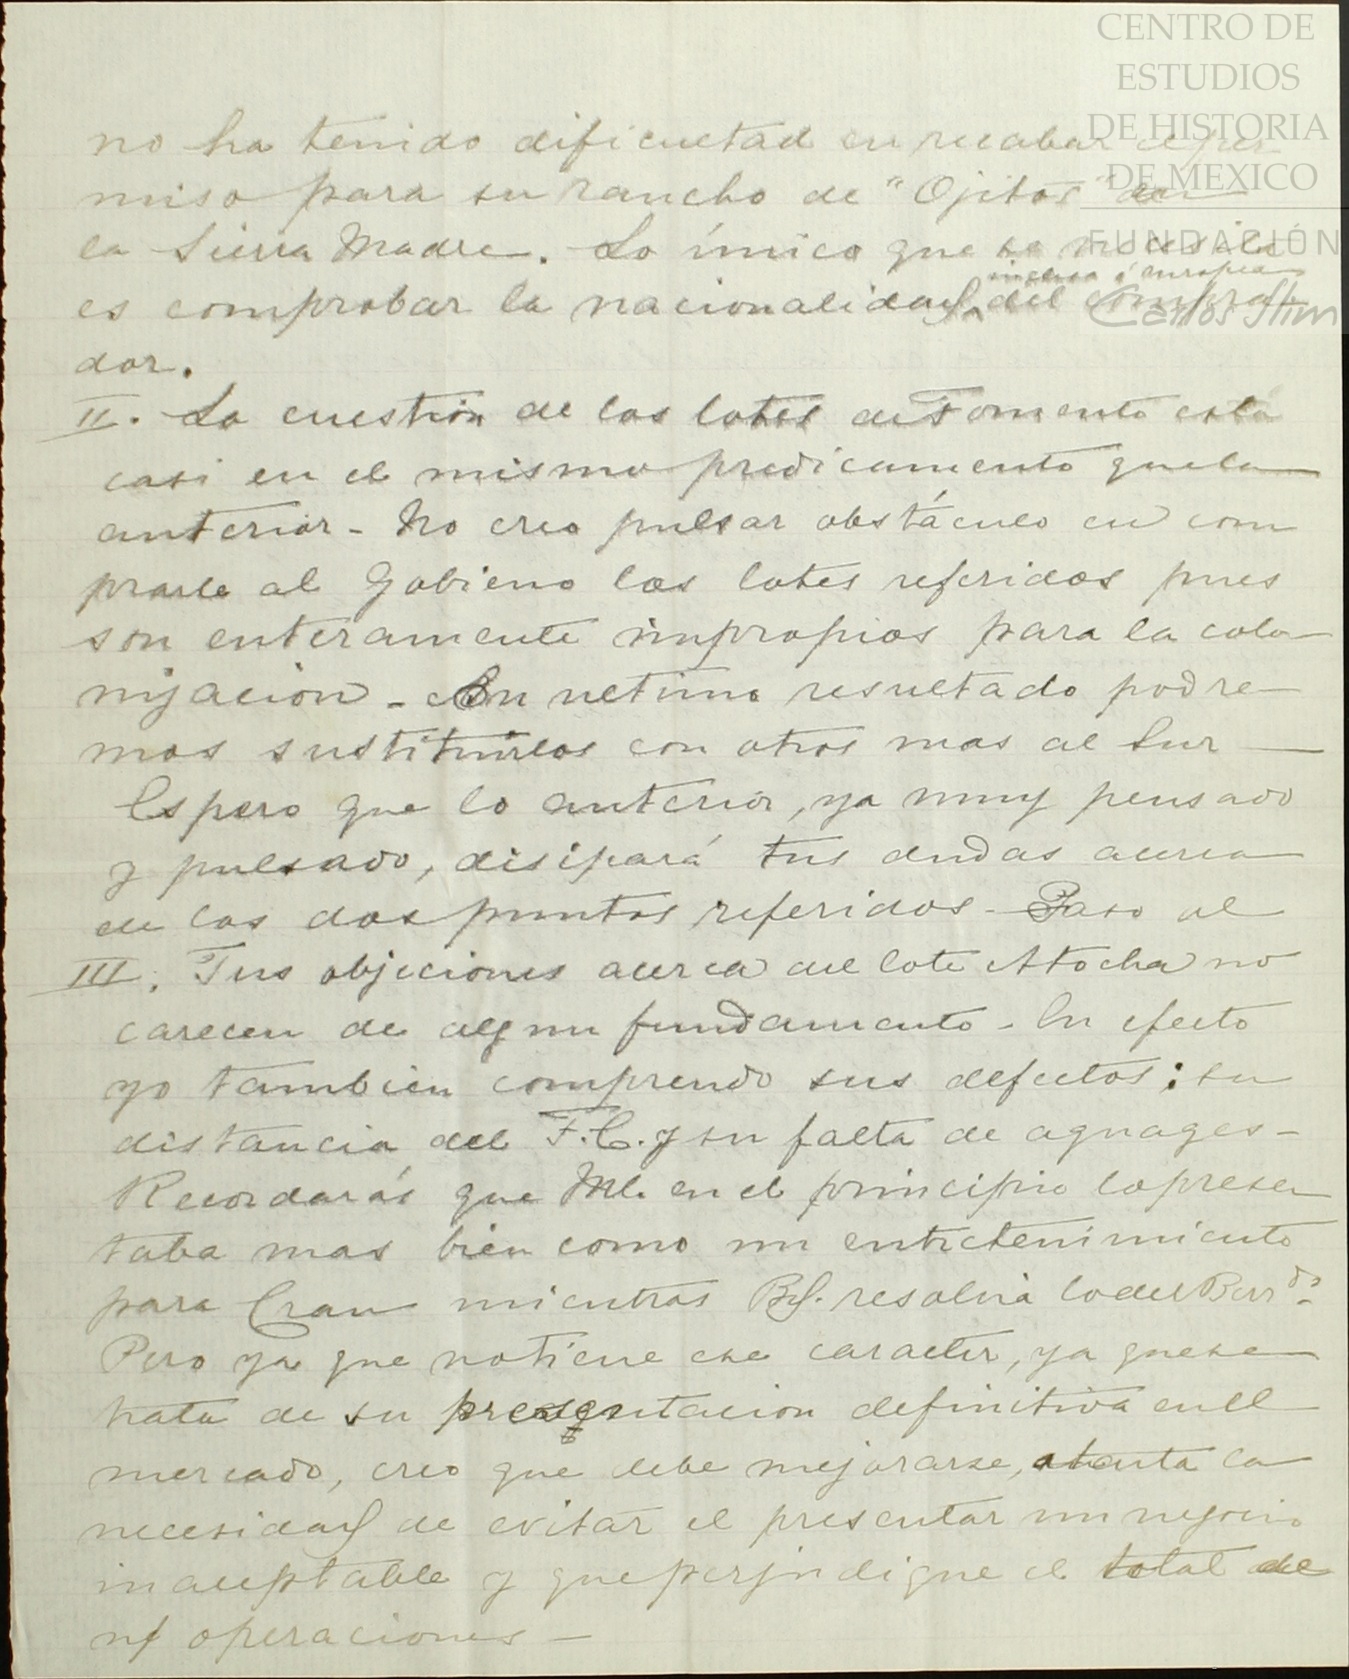 CENTRO DE
ESTUDIOS
DE HISTORIA
DE MEXICO
FUNDACIÓN
Carlos Slim
no ha tenido dificultad en recabar el per
miso para su rancho de "Ojitos" en
la Sierra Madre. Lo único que se necesita
es comprobar la nacionalidad inglesa ó europea del compra
dor.
II. La cuestión de los lotes de Fomento está
casi en el mismo predicamento que la
anterior - No creo pulsar obstáculo en com
prarle al Gobierno los lotes referidos pues
son enteramente impropios para la colo-
nizacion - En ultimo resultado podre-
mos sustituirlos con otros mas al Sur -
Espero que lo anterior, ya muy pensado
y pulsado, disipará tus dudas acerca
de los dos puntos referidos - Paso al
III. Tus objeciones acerca del lote Atocha no
carecen de algun fundamento - En efecto
yo tambien comprendo sus defectos: su
distancia del F.C. y su falta de aguages -
Recordarás que Ml. en el principio lo presen
taba mas bien como un entretenimiento
para Cran mientras Bf. resolvia lo del Berrdo.
Pero ya que no tiene ese caracter, ya que se
trata de su presentacion definitiva en el
mercado, creo que debe mejorarse, atenta la
necesidad de evitar el presentar un negocio
inaceptable y que perjudique el total de
n/ operaciones -